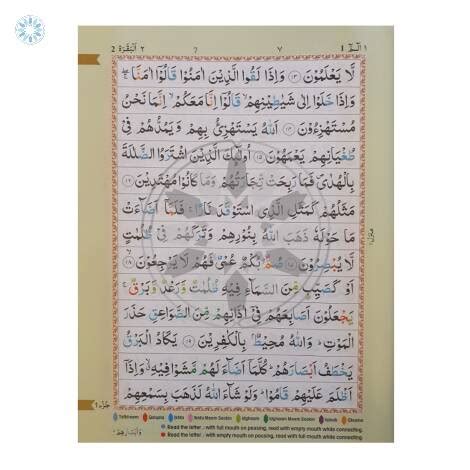 ١ الٓمّٓ 1 ٧ 7 ٢ اَلْبَقَرَة 2
لَّا يَعْلَمُوْنَ ١٣ وَاِذَا لَقُوا الَّذِيْنَ اٰمَنُوْا قَالُوْٓا اٰمَنَّا ۚ
وَاِذَا خَلَوْا اِلٰى شَيٰطِيْنِهِمْ ۙ قَالُوْٓا اِنَّا مَعَكُمْ ۙ اِنَّمَا نَحْنُ
مُسْتَهْزِءُوْنَ ١٤ اَللّٰهُ يَسْتَهْزِئُ بِهِمْ وَيَمُدُّهُمْ فِيْ
طُغْيَانِهِمْ يَعْمَهُوْنَ ١٥ اُولٰٓئِكَ الَّذِيْنَ اشْتَرَوُا الضَّلٰلَةَ
بِالْهُدٰى ۪ فَمَا رَبِحَتْ تِّجَارَتُهُمْ وَمَا كَانُوْا مُهْتَدِيْنَ ١٦
مَثَلُهُمْ كَمَثَلِ الَّذِى اسْتَوْقَدَ نَارًا ۚ فَلَمَّآ اَضَآءَتْ
مَا حَوْلَهٗ ذَهَبَ اللّٰهُ بِنُوْرِهِمْ وَتَرَكَهُمْ فِيْ ظُلُمٰتٍ
لَّا يُبْصِرُوْنَ ١٧ صُمٌّۢ بُكْمٌ عُمْيٌ فَهُمْ لَا يَرْجِعُوْنَ ١٨
اَوْ كَصَيِّبٍ مِّنَ السَّمَآءِ فِيْهِ ظُلُمٰتٌ وَّرَعْدٌ وَّبَرْقٌ ۚ
يَجْعَلُوْنَ اَصَابِعَهُمْ فِيْٓ اٰذَانِهِمْ مِّنَ الصَّوَاعِقِ حَذَرَ
الْمَوْتِ ؕ وَاللّٰهُ مُحِيْطٌۢ بِالْكٰفِرِيْنَ ١٩ يَكَادُ الْبَرْقُ
يَخْطَفُ اَبْصَارَهُمْ ؕ كُلَّمَآ اَضَآءَ لَهُمْ مَّشَوْا فِيْهِ ۙ وَاِذَآ
اَظْلَمَ عَلَيْهِمْ قَامُوْا ؕ وَلَوْ شَآءَ اللّٰهُ لَذَهَبَ بِسَمْعِهِمْ
Tafkheem Qalqala Ikhfa Ikhfa Meem Saakin Idghaam Idghaam Meem Saakin Iqlaab Ghunna
Read the letter , with full mouth on pausing, read with empty mouth while connecting.
Read the letter , with empty mouth on pausing, read with full mouth while connecting.
وَاَبْصَارِهِمْ ؕ